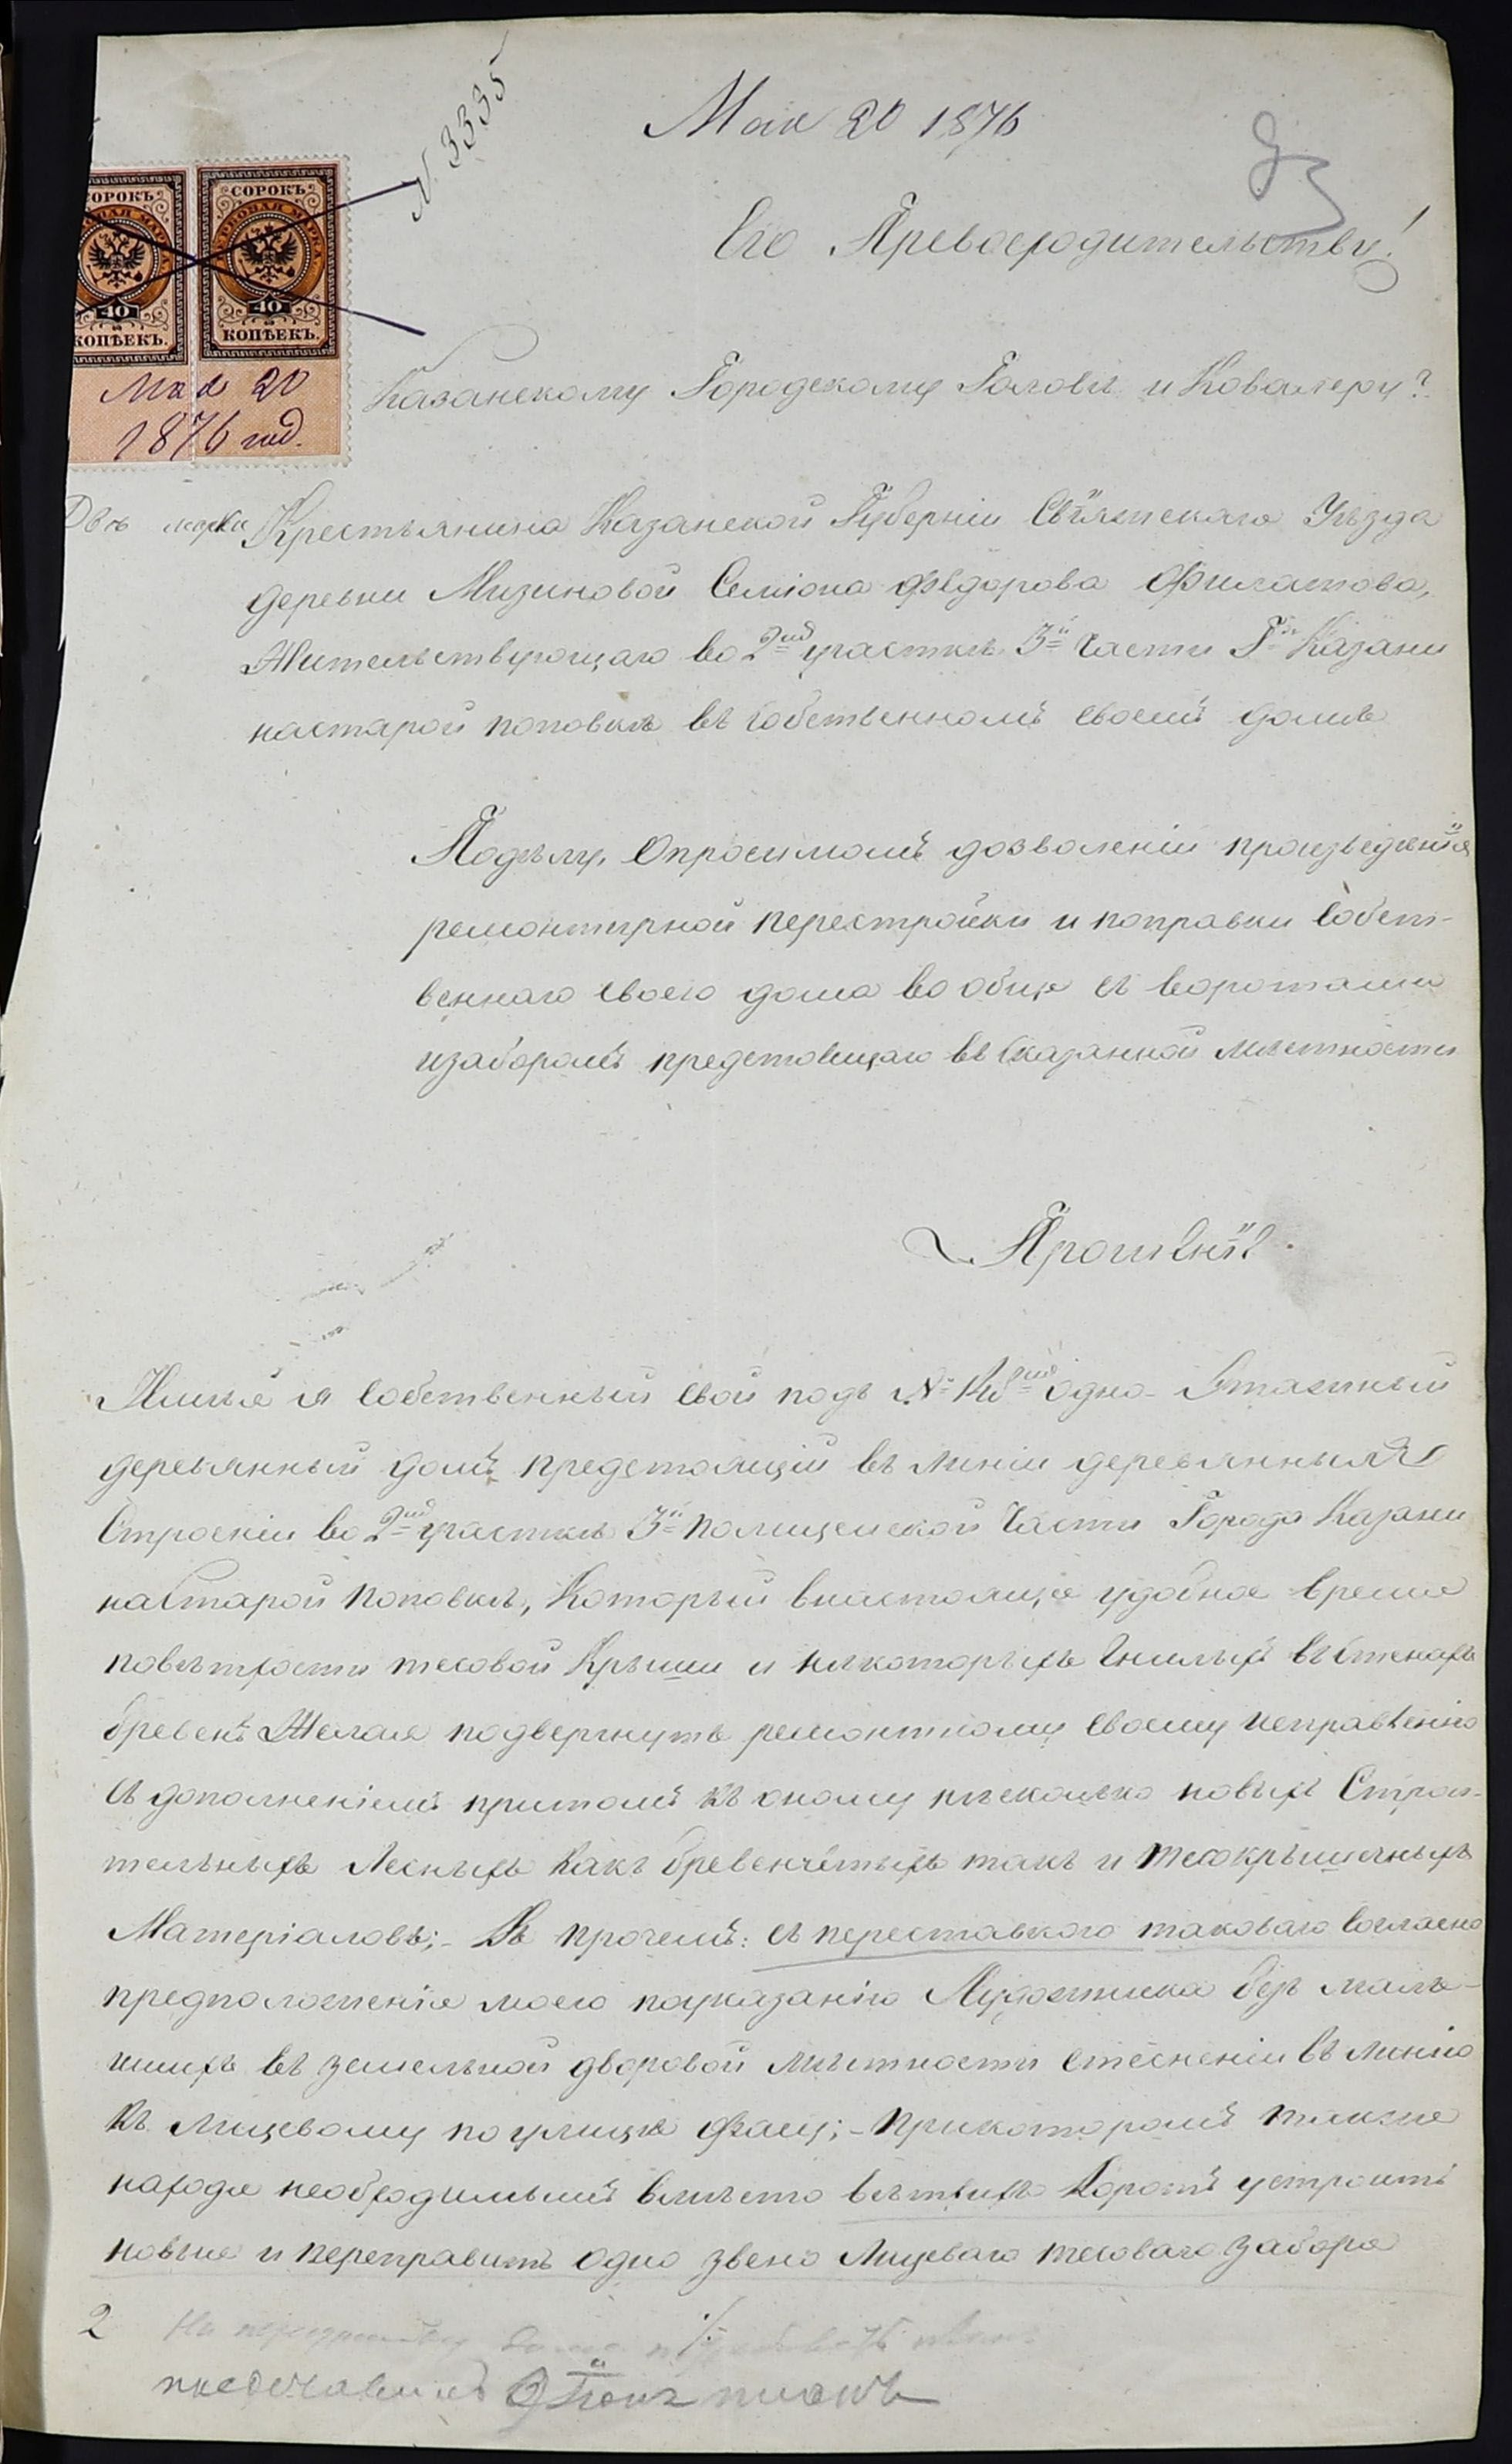 N 3335
Мая 20 1876
Его Превосходительству!
СОРОКЪ
СОРОКЪ
ГЕРБОВАЯ МАРКА
40 40
КОПѢЕКЪ. КОПѢЕКЪ.
Мая 20
1876 год.
Казанскому Городскому Головѣ и Ковалеру?
Двѣ марки
Крестьянина Казанской Губерніи Свіяжскаго Уѣзда
деревни Мизиновой Семіона Фѣдорова Филатова,
Жительствующаго во 2ом участкѣ 3й Части Гда Казани
настарой поповкѣ въ Собственномъ своемъ домѣ
Подѣлу, Опросимомъ дозволеніи произведенія
ремонтирной перестройки и поправки Собст-
веннаго своего дома во обще съ воротами
изаборомъ предстоящаго въ Сказанной мѣстности
Прошеніе.
Имѣя я Собственный свой подъ № одно-Этажный
деревянный домъ предстоящій въ линіи деревянныхъ
Строеніи во 2ом участкѣ 3й полицейской Части Города Казани
наСтарой поповкѣ, Который внастояще удобное время
поветхости тесовой Крыши и некоторыхъ Гнилыхъ въ Стенахъ
бревенъ Желая подвергнуть ремонтному своему исправленію
съ дополненіемъ притомъ къ оному нѣсколько новыхъ Строи-
тельныхъ Лесныхъ Какъ бревенчетыхъ такъ и тесокрышечныхъ
Матеріаловъ;- Въ прочемъ: съ переставкою таковаго Согласно
предположенія моего поуказанію Художника безъ малѣ-
ишихъ въ земельной дворовой мѣстности стесненіи въ линію
къ лицевому поулицѣ фасу;- прикоторомъ также
находя необходимымъ вмѣсто ветхихъ Воротъ устроить
новые и переправить одно звено Лицеваго тесоваго забора
2 На